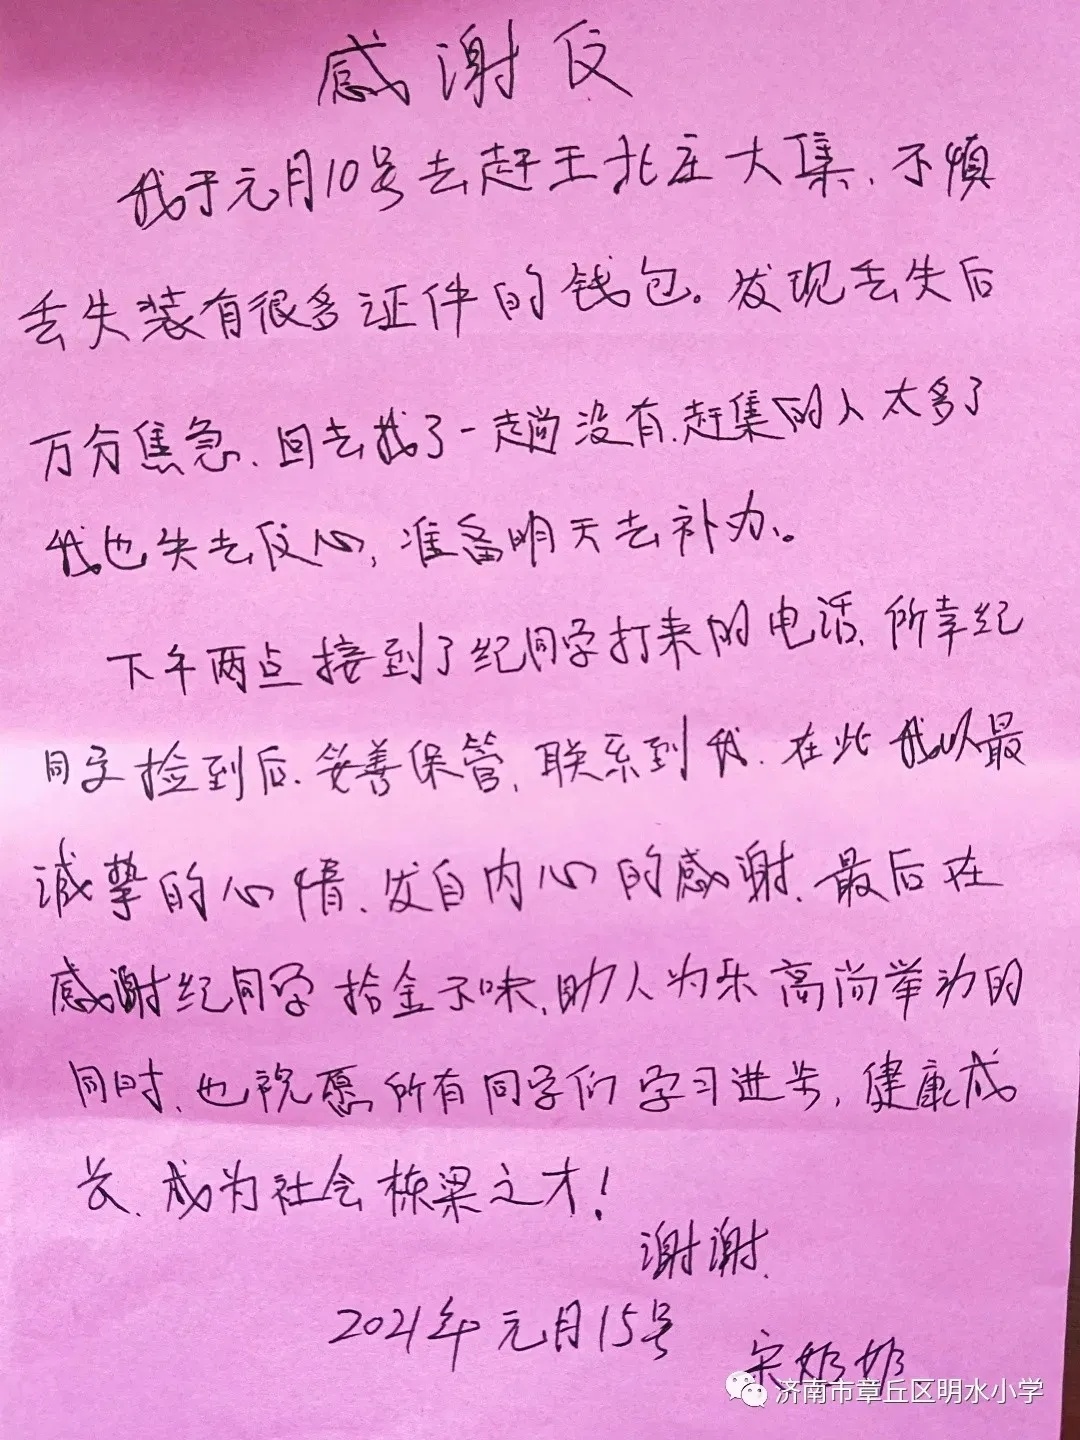 感谢信
我于元月10号去赶王北庄大集、不慎
丢失装有很多证件的钱包。发现丢失后
万分焦急、回去找了一趟没有、赶集的人太多了
我也失去信心,准备明天去补办。
下午两点接到了纪同学打来的电话、所幸纪
同学捡到后、妥善保管,联系到我、在此我以最
诚挚的心情、发自内心的感谢、最后在
感谢纪同学拾金不昧、助人为乐高尚举动的
同时、也祝愿所有同学们学习进步,健康成
长、成为社会栋梁之才!
谢谢、
2021年元月15号
宋奶奶
济南市章丘区明水小学